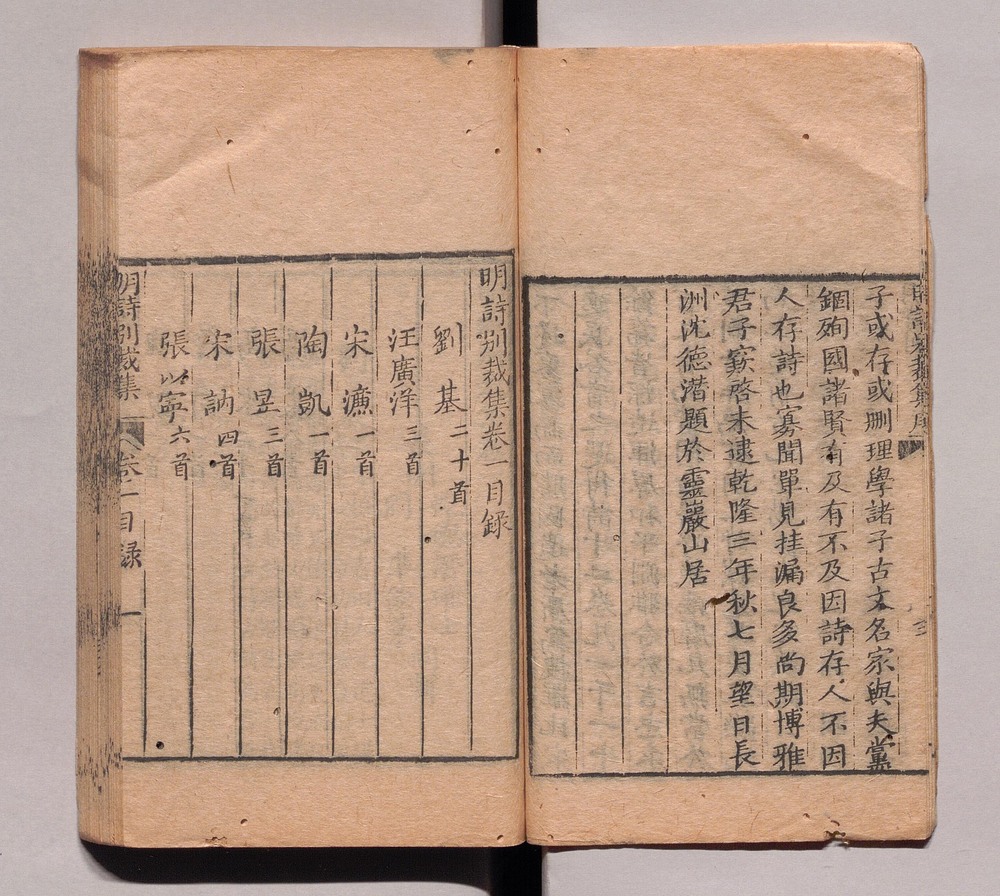 子或存或删理學諸子古文名家與夫黨
錮殉國諸賢有及有不及因詩存人不因
人存詩也寡聞單見挂漏良多尚期博雅
君子窾啓未逮乾隆三年秋七月望日長
洲沈德潛題於靈巖山居
明詩别裁集卷一目録
劉基二十首
汪廣洋三首
宋濂一首
陶凱一首
張昱三首
宋訥四首
張以寧六首
明詩别裁集 卷一目録 一